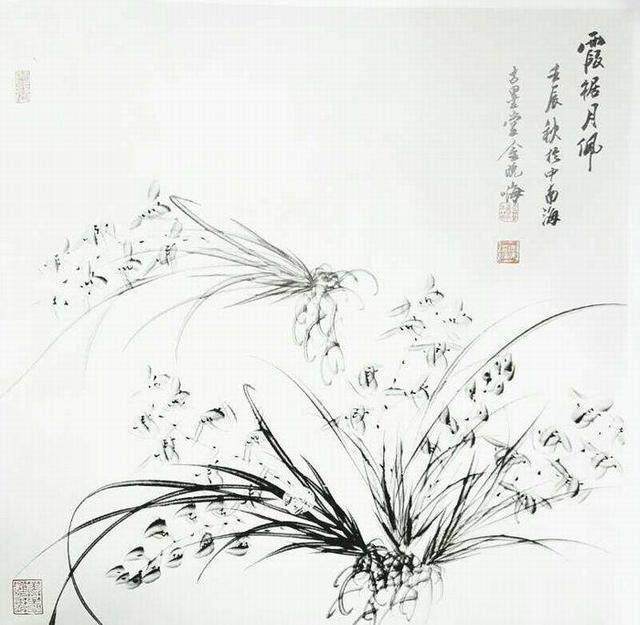 霞裾月佩
壬辰秋於中南海
古墨堂金